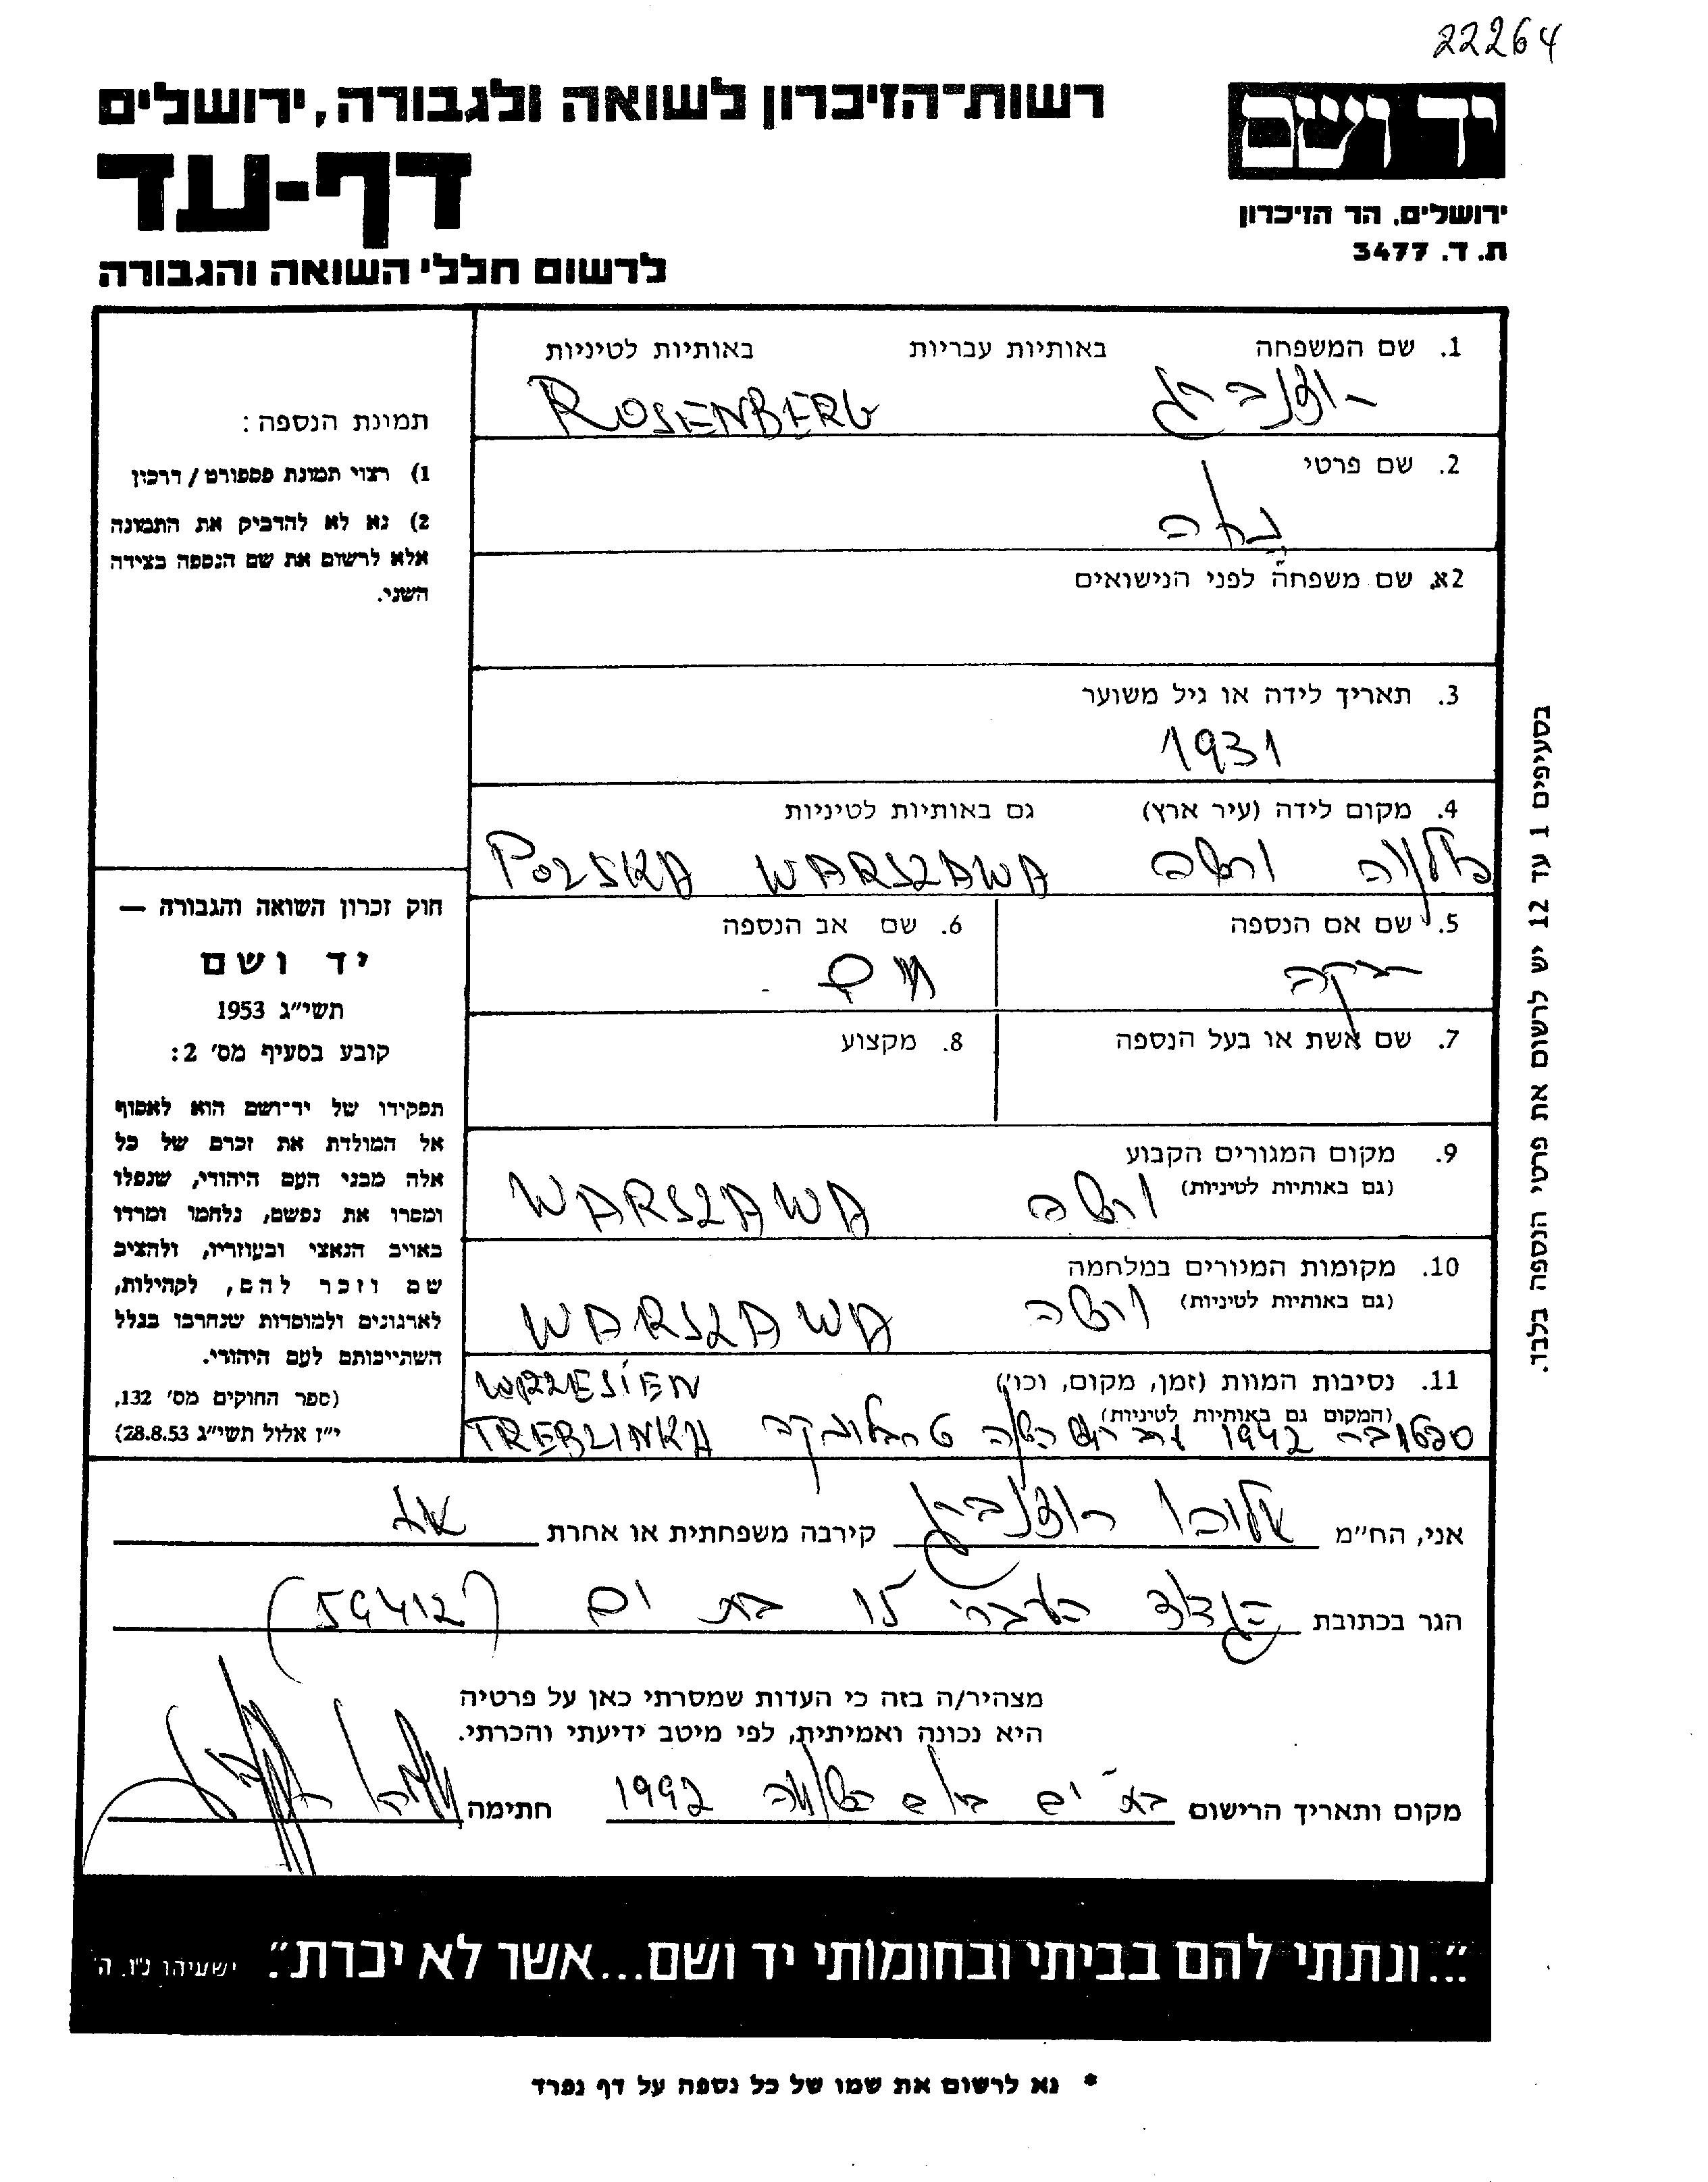 22264
רשות־הזיכרון לשואה ולגבורה, ירושלים
יד ושם
דף-עד
ירושלים, הר הזיכרון
ת. ד. 3477
לרשום חללי השואה והגבורה
1. שם המשפחה באותיות עבריות באותיות לטיניות
רוזנברג ROSENBERG
2. שם פרטי
2א. שם משפחה לפני הנישואים
3. תאריך לידה או גיל משוער
1931
4. מקום לידה (עיר ארץ) גם באותיות לטיניות
ורשה POLSKA WARSZAWA
5. שם אם הנספה
רבקה
6. שם אב הנספה
7. שם אשת או בעל הנספה
8. מקצוע
9. מקום המגורים הקבוע
(גם באותיות לטיניות) ורשה WARSZAWA
10. מקומות המגורים במלחמה
(גם באותיות לטיניות) ורשה WARSZAWA
11. נסיבות המוות (זמן, מקום, וכו׳) WRZESIEŃ
(המקום גם באותיות לטיניות)
1942 ערב ראש השנה טרבלינקה TREBLINKA
תמונת הנספה:
1) רצוי תמונת פספורט / דרכון
2) נא לא להדביק את התמונה
אלא לרשום את שם הנספה בצידה
השני.
חוק זכרון השואה והגבורה —
יד ושם
תשי״ג 1953
קובע בסעיף מס׳ 2:
תפקידו של יד־ושם הוא לאסוף
אל המולדת את זכרם של כל
אלה מבני העם היהודי, שנפלו
ומסרו את נפשם, נלחמו ומרדו
באויב הנאצי ובעוזריו, ולהציב
שם וזכר להם, לקהילות,
לארגונים ולמוסדות שנחרבו בגלל
השתייכותם לעם היהודי.
(ספר החוקים מס׳ 132,
י״ז אלול תשי״ג 28.8.53)
בסעיפים 1 עד 12 יש לרשום את פרטי הנספה בלבד.
אני, הח״מ רוזנברג קירבה משפחתית או אחרת אח
הגר בכתובת בת ים (59412)
מצהיר/ה בזה כי העדות שמסרתי כאן על פרטיה
היא נכונה ואמיתית, לפי מיטב ידיעתי והכרתי.
מקום ותאריך הרישום בת ים ביום השואה 1992 חתימה
״...ונתתי להם בביתי ובחומותי יד ושם...אשר לא יכרת״. ישעיהו נ״ו, ה׳
* נא לרשום את שמו של כל נספה על דף נפרד